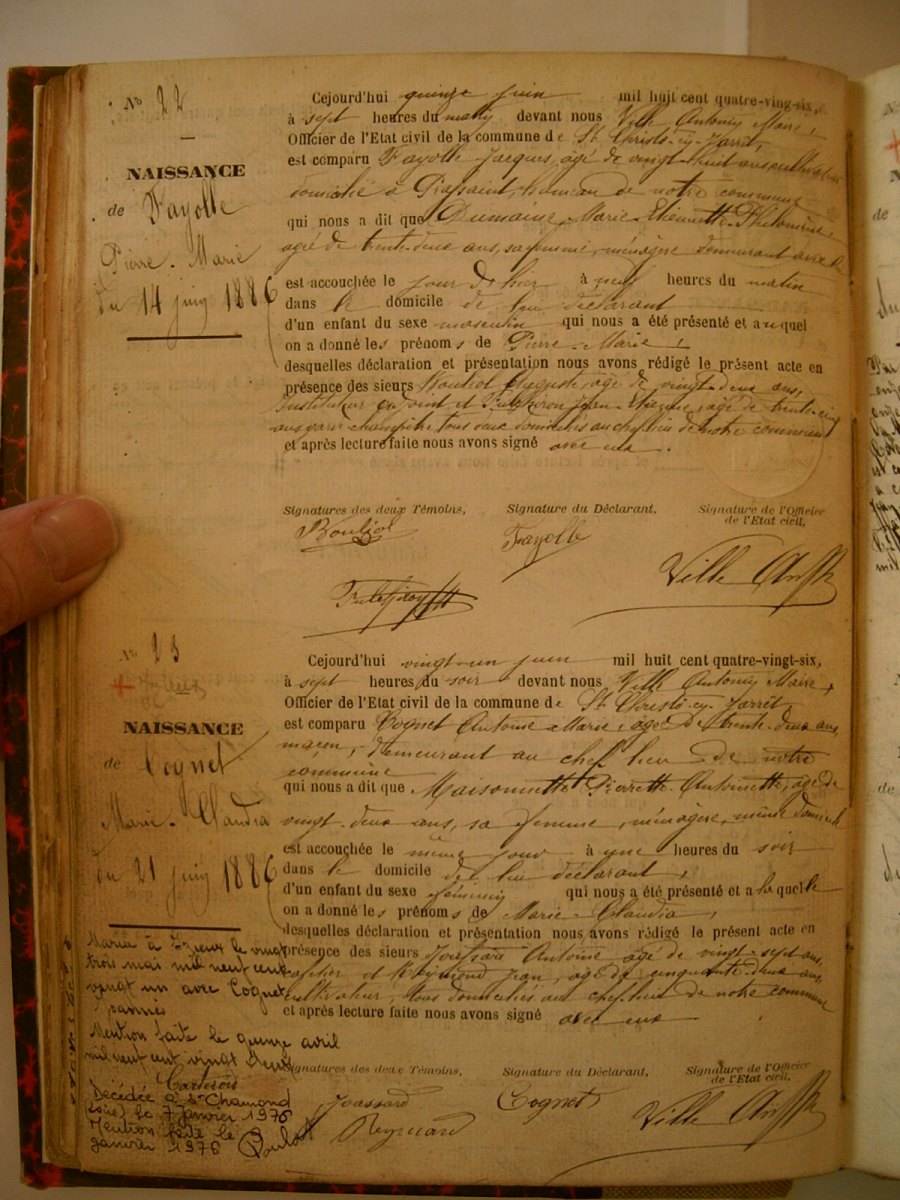 N° 22
NAISSANCE
de Fayolle
Pierre-Marie
du 14 juin 1886
Cejourd'hui quinze juin mil huit cent quatre-vingt-six,
à sept heures du matin devant nous Ville Antonin Maire,
Officier de l'Etat civil de la commune de St Christô-en-Jarrêt,
est comparu Fayolle Jacques, agé de vingt-huit ans cultivateur
domicilié à hameau de notre commune
qui nous a dit que Dumaine Marie-Etiennette-Philomène,
agée de trente-deux ans, sa femme, ménagère demeurant avec lui
est accouchée le jour de hier à neuf heures du matin
dans le domicile de lui déclarant
d'un enfant du sexe masculin qui nous a été présenté et auquel
on a donné les prénoms de Pierre-Marie,
desquelles déclaration et présentation nous avons rédigé le présent acte en
présence des sieurs agé de vingt-deux ans,
instituteur adjoint et Jean-Etienne, agé de trente-cinq
ans garde champêtre, tous deux domiciliés au chef lieu de notre commune
et après lecture faite nous avons signé avec eux.
Signatures des deux Témoins,
Signature du Déclarant,
Signature de l'Officier
de l'Etat civil,
Fayolle
Ville Ant
N° 23
NAISSANCE
de Cognet
Marie-Claudia
du 21 juin 1886
Cejourd'hui vingt-un juin mil huit cent quatre-vingt-six,
à sept heures du soir devant nous Ville Antonin Maire,
Officier de l'Etat civil de la commune de St Christô-en-Jarrêt,
est comparu Cognet Antoine Marie, agé de trente-deux ans,
maçon, demeurant au chef lieu de notre
commune
qui nous a dit que Maisonnette Pierrette Antoinette, agée de
vingt-deux ans, sa femme, ménagère, même domicile
est accouchée le même jour à une heures du soir
dans le domicile de lui déclarant,
d'un enfant du sexe féminin qui nous a été présenté et a laquelle
on a donné les prénoms de Marie-Claudia,
desquelles déclaration et présentation nous avons rédigé le présent acte en
présence des sieurs Joassard Antoine agé de vingt-sept ans,
et Reymond Jean, agé de cinquante-deux ans,
cultivateur, tous domiciliés au chef-lieu de notre commune
et après lecture faite nous avons signé avec eux
Mariée à Izieux le vingt
trois mai mil neuf cent
vingt un avec Cognet
Joannès
Mention faite le quinze avril
mil neuf cent vingt deux
Décédée à St Chamond
(Loire) le 7 Janvier 1976
Mention faite le 9
janvier 1976
Signatures des deux Témoins,
Signature du Déclarant,
Signature de l'Officier
de l'Etat civil,
Joassard
Cognet
Reymond
Ville Ant